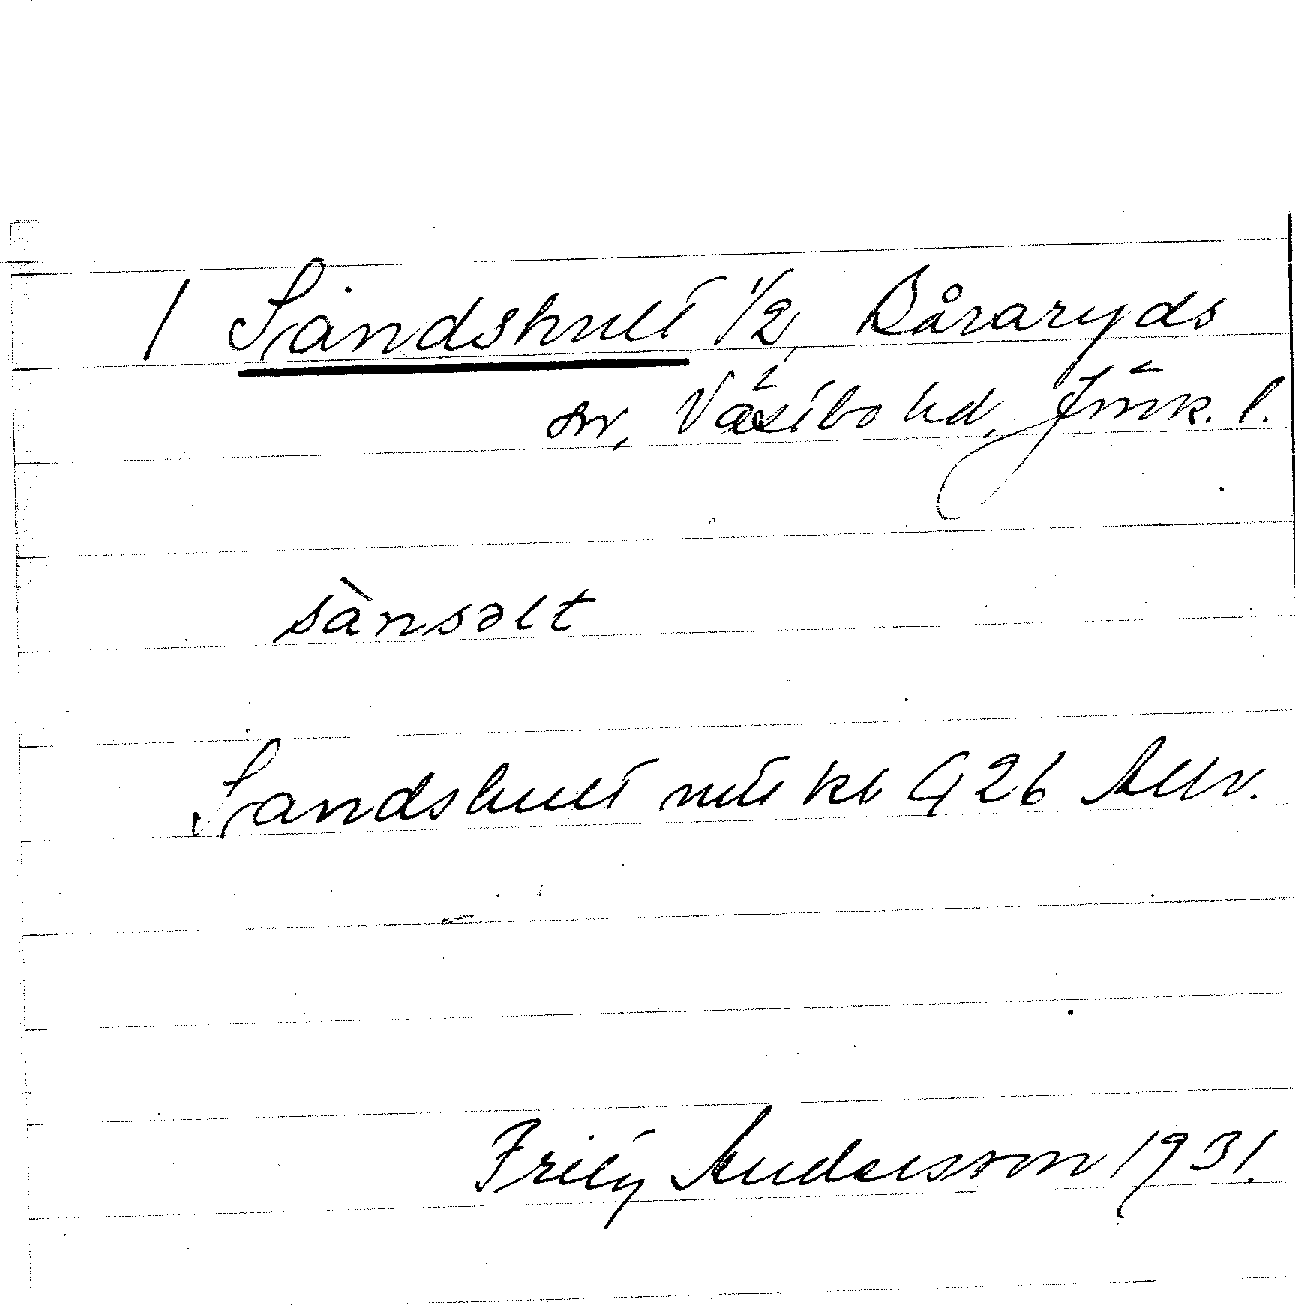 1 Sandshult 1/2, Båraryds
sn, Västbo hd, Jönk. l.
sànsəlt
Sandshult mtl kb G 26 Allv.
Fritz Andersson 1931.